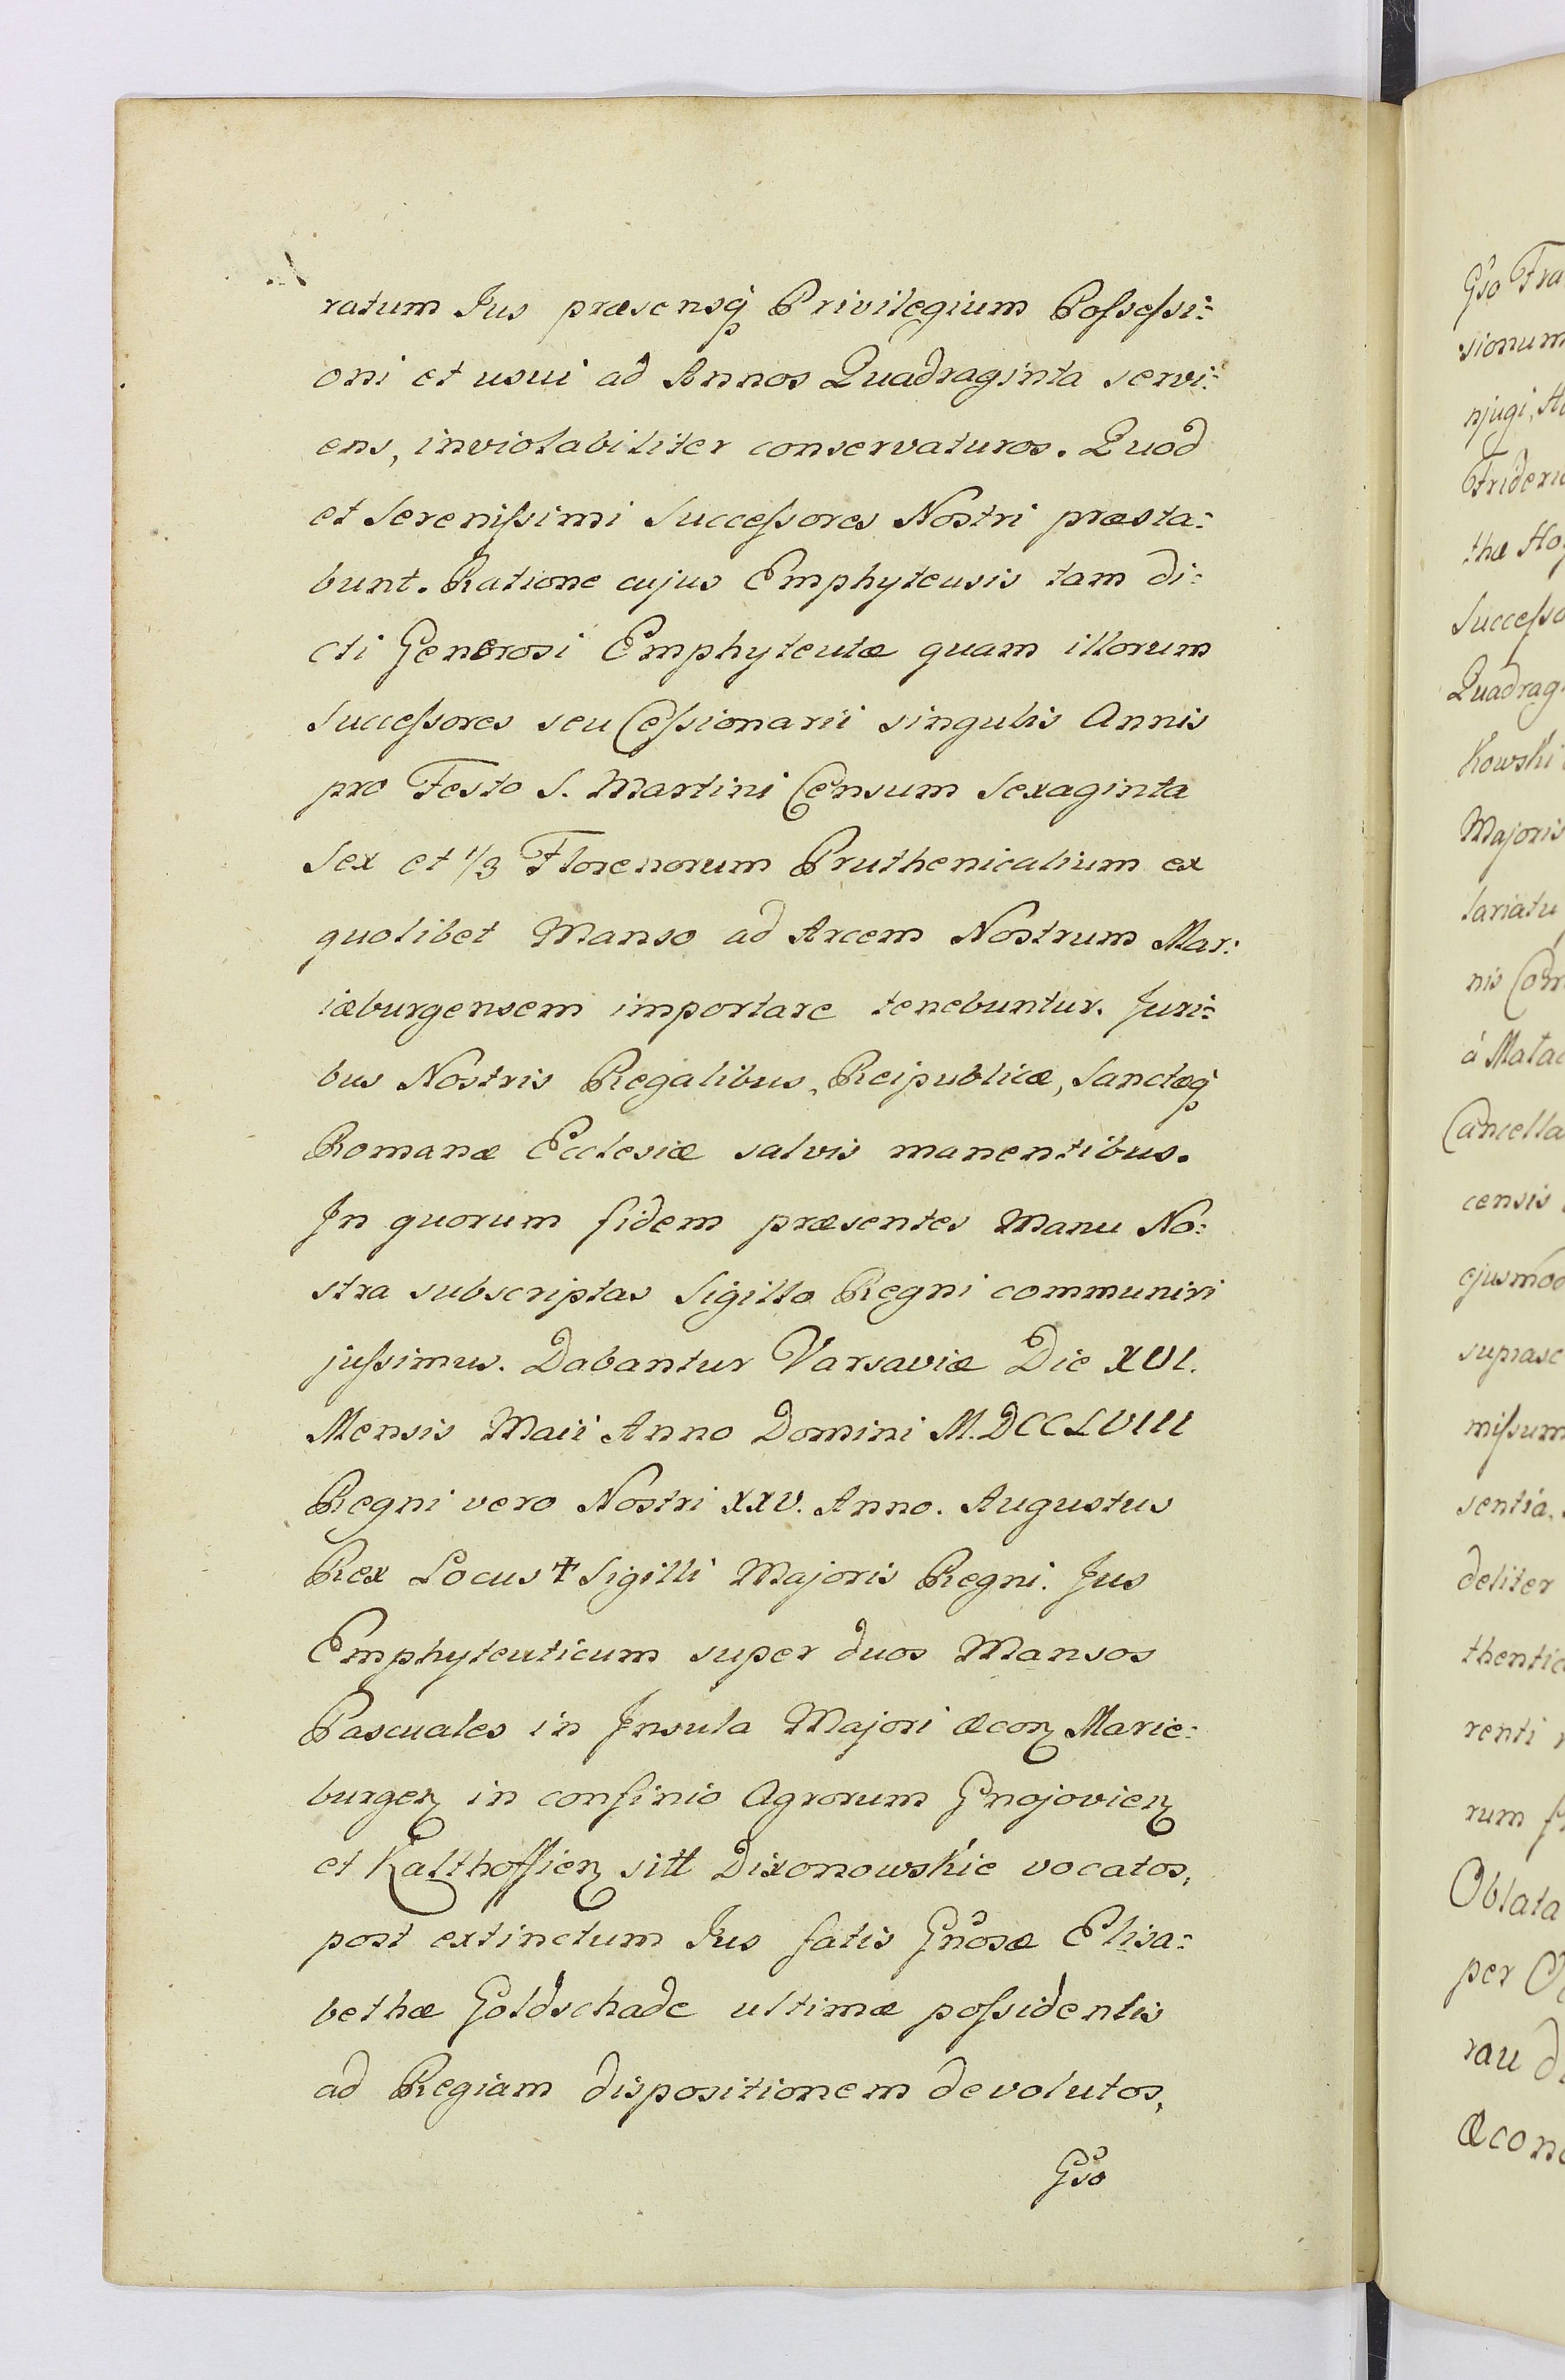 ratum Jus præsensq́ Privilegium Poſseſsi:
oni et usui ad Annos Quadraginta servi:
ens, inviolabiliter conservaturos. Quod
et Sereniſsimi Succeſsores Nostri præsta:
bunt. Ratione cujus Emphyteusis tam di:
cti Generosi Emphyteutæ quam illorum
Succeſsores seu Ceſsionarii singulis Annis
pro Festo S. Martini Censum Sexaginta
Sex et 1/3 Florenorum Pruthenicalium ex
quolibet Manso ad Arcem Nostrum Mar:
iæburgensem importare tenebuntur. Juri:
bus Nostris Regalibus, Reipublicæ, Sanctæq́
Romanæ Ecclesiæ salvis manentibus.
In quorum fidem præsentes Manu No:
stra subscriptas Sigillo Regni communiri
juſsimus. Dabantur Varsaviæ Die XVI.
Mensis Maii Anno Domini M.DCCLVIII
Regni vero Nostri XXV. Anno. Augustus
Rex Locus ✝ Sigilli Majoris Regni. Jus
Emphyteuticum super duos Mansos
Pascuales in Insula Majori Œcon̨ Marie:
burgen̨ in confinio Agrorum Gnojovien̨
et Kalthoffien̨ sitt Dixonowskie vocatos,
post extinctum Jus fatis Gñosæ Elisa:
bethæ Goldschade ultimæ poſsidentis
ad Regiam dispositionem devolutos,
Gso
Gso Fra
sionum
njugi,
Frideri
thæ
Succeſso
Quadrag
kowski
Majoris
lariatu
nis Com
á Mata
Cancella
censis
ejusmod
suprasc
miſsum
sentiá.
deliter
thentic
renti
rum
Oblata
per
rau
Œcon